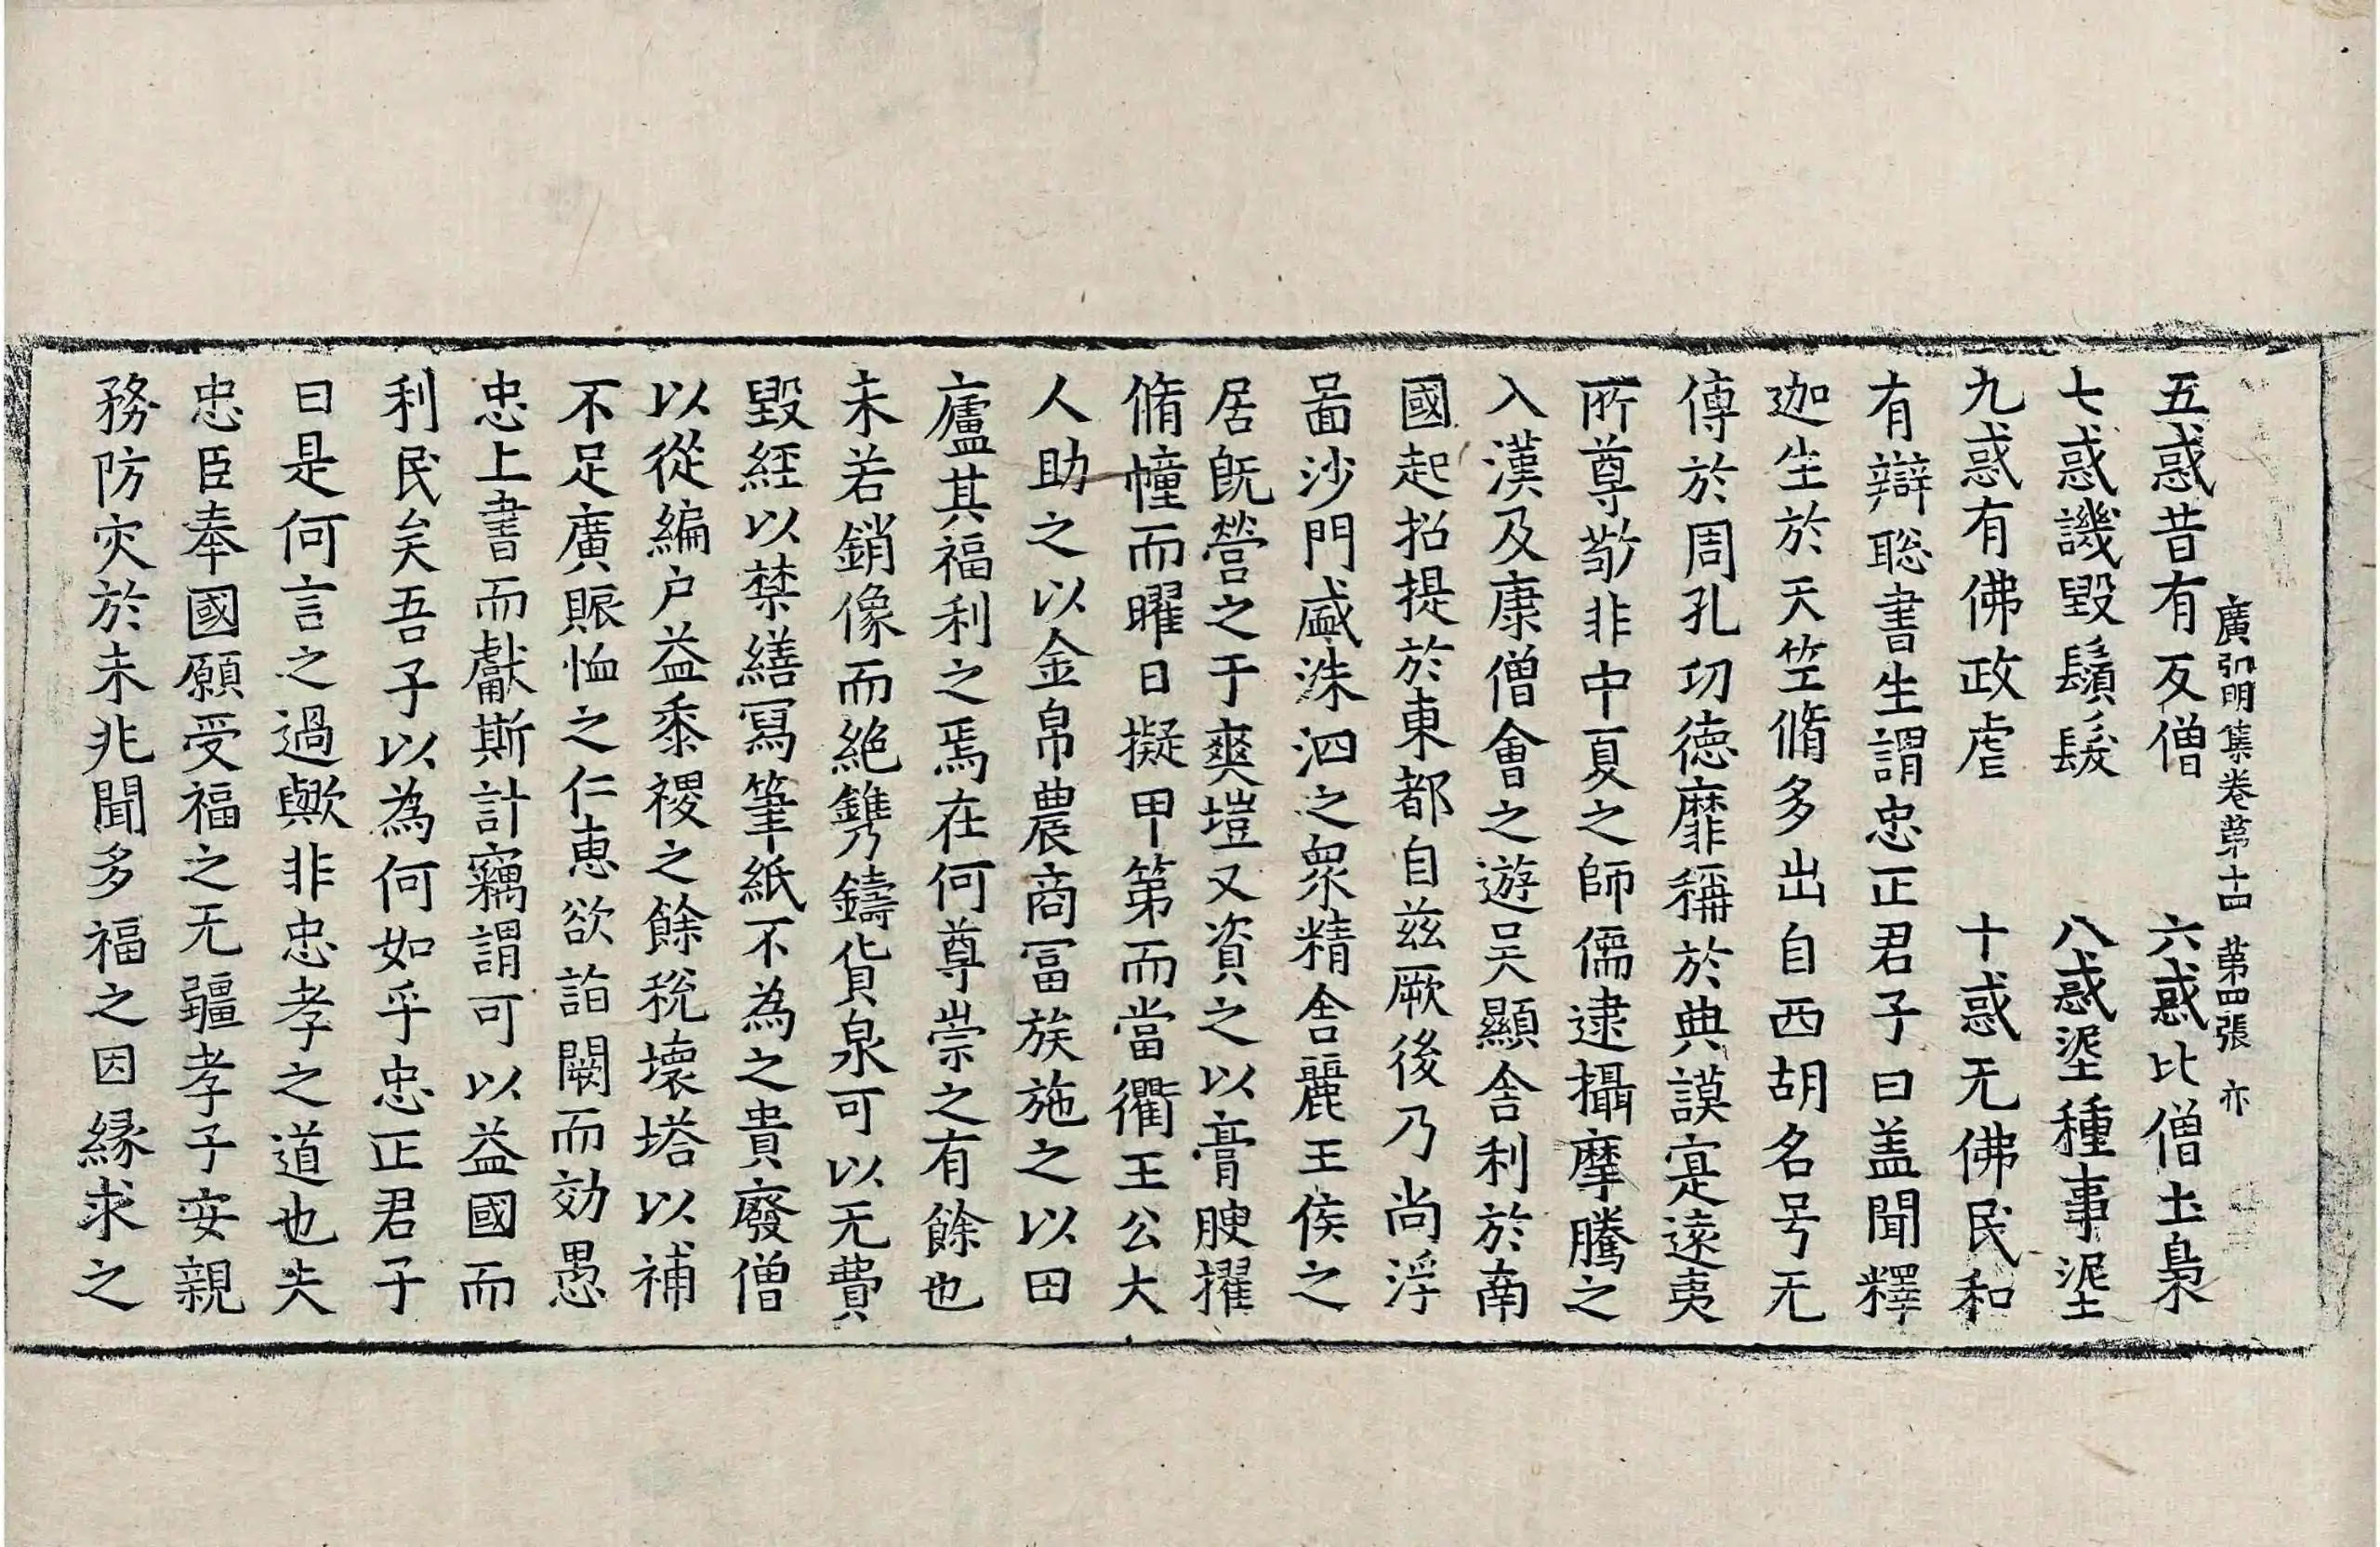 廣弘明集卷第十四　第四張　亦
五惑昔有反僧　六惑比僧土梟
七惑譏毀鬚髮　八惑埿種事埿
九惑有佛政虐　十惑无佛民和
有辯聡書生謂忠正君子曰盖聞釋
迦生於天竺脩多出自西胡名号无
傳於周孔功德靡稱於典謨寔遠夷
所尊敬非中夏之師儒逮攝摩騰之
入漢及康僧會之遊吴顯舍利於南
國起招提於東都自兹厥後乃尚浮
啚沙門盛洙泗之衆精舍麗王侯之
居旣營之于爽塏又資之以膏腴擢
脩幢而曜日擬甲第而當衢王公大
人助之以金帛農商冨族施之以田
廬其福利之焉在何尊崇之有餘也
未若銷像而絶鐫鑄貨泉可以无費
毀經以禁繕冩筆紙不為之貴廢僧
以從編户益黍稷之餘稅壞塔以補
不足廣賑恤之仁惠欲詣闕而効愚
忠上書而獻斯計竊謂可以益國而
利民矣吾子以為何如乎忠正君子
曰是何言之過歟非忠孝之道也夫
忠臣奉國願受福之无疆孝子安親
務防灾於未兆聞多福之因縁求之